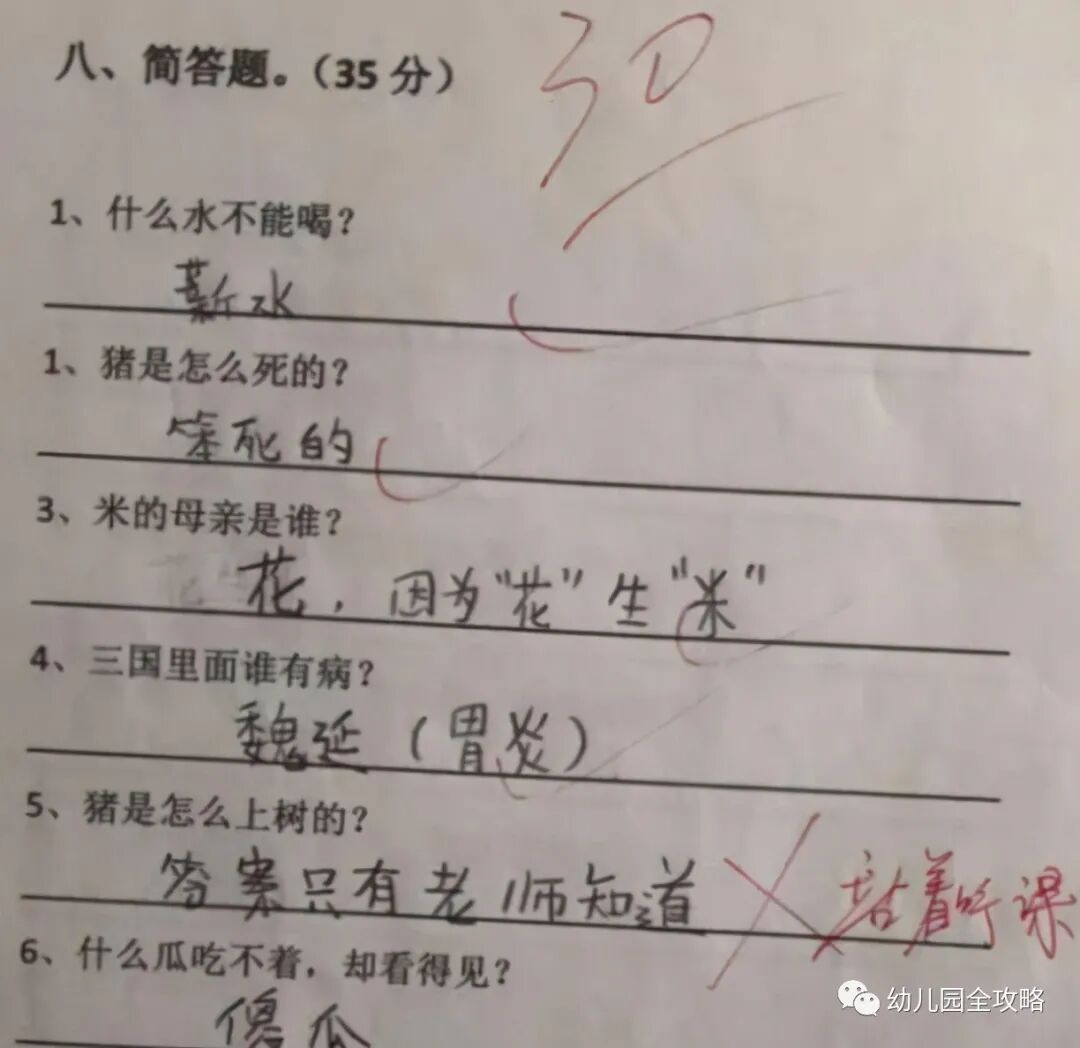 八、简答题。（35分）
30
1、什么水不能喝？
薪水
1、猪是怎么死的？
笨死的
3、米的母亲是谁？
花，因为“花”生“米”
4、三国里面谁有病？
魏延（胃炎）
5、猪是怎么上树的？
答案只有老师知道
站着听课
6、什么瓜吃不着，却看得见？
傻瓜
幼儿园全攻略